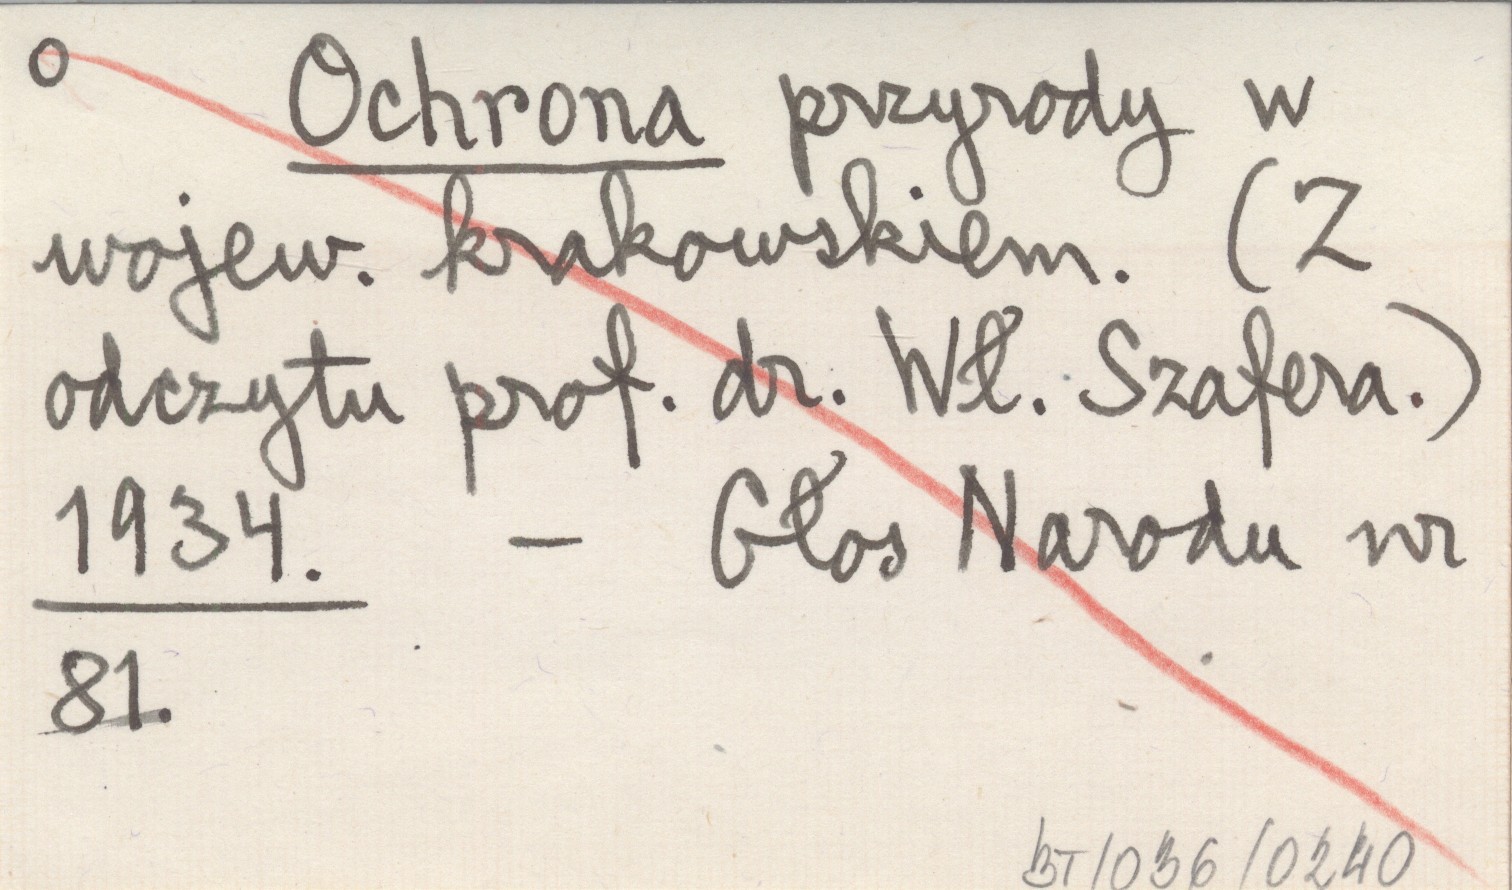 o Ochrona przyrody w
wojew. krakowskiem. (Z
odczytu prof. dr. Wł. Szafera.)
1934. – Głos Narodu nr
81.
BT/036/0240